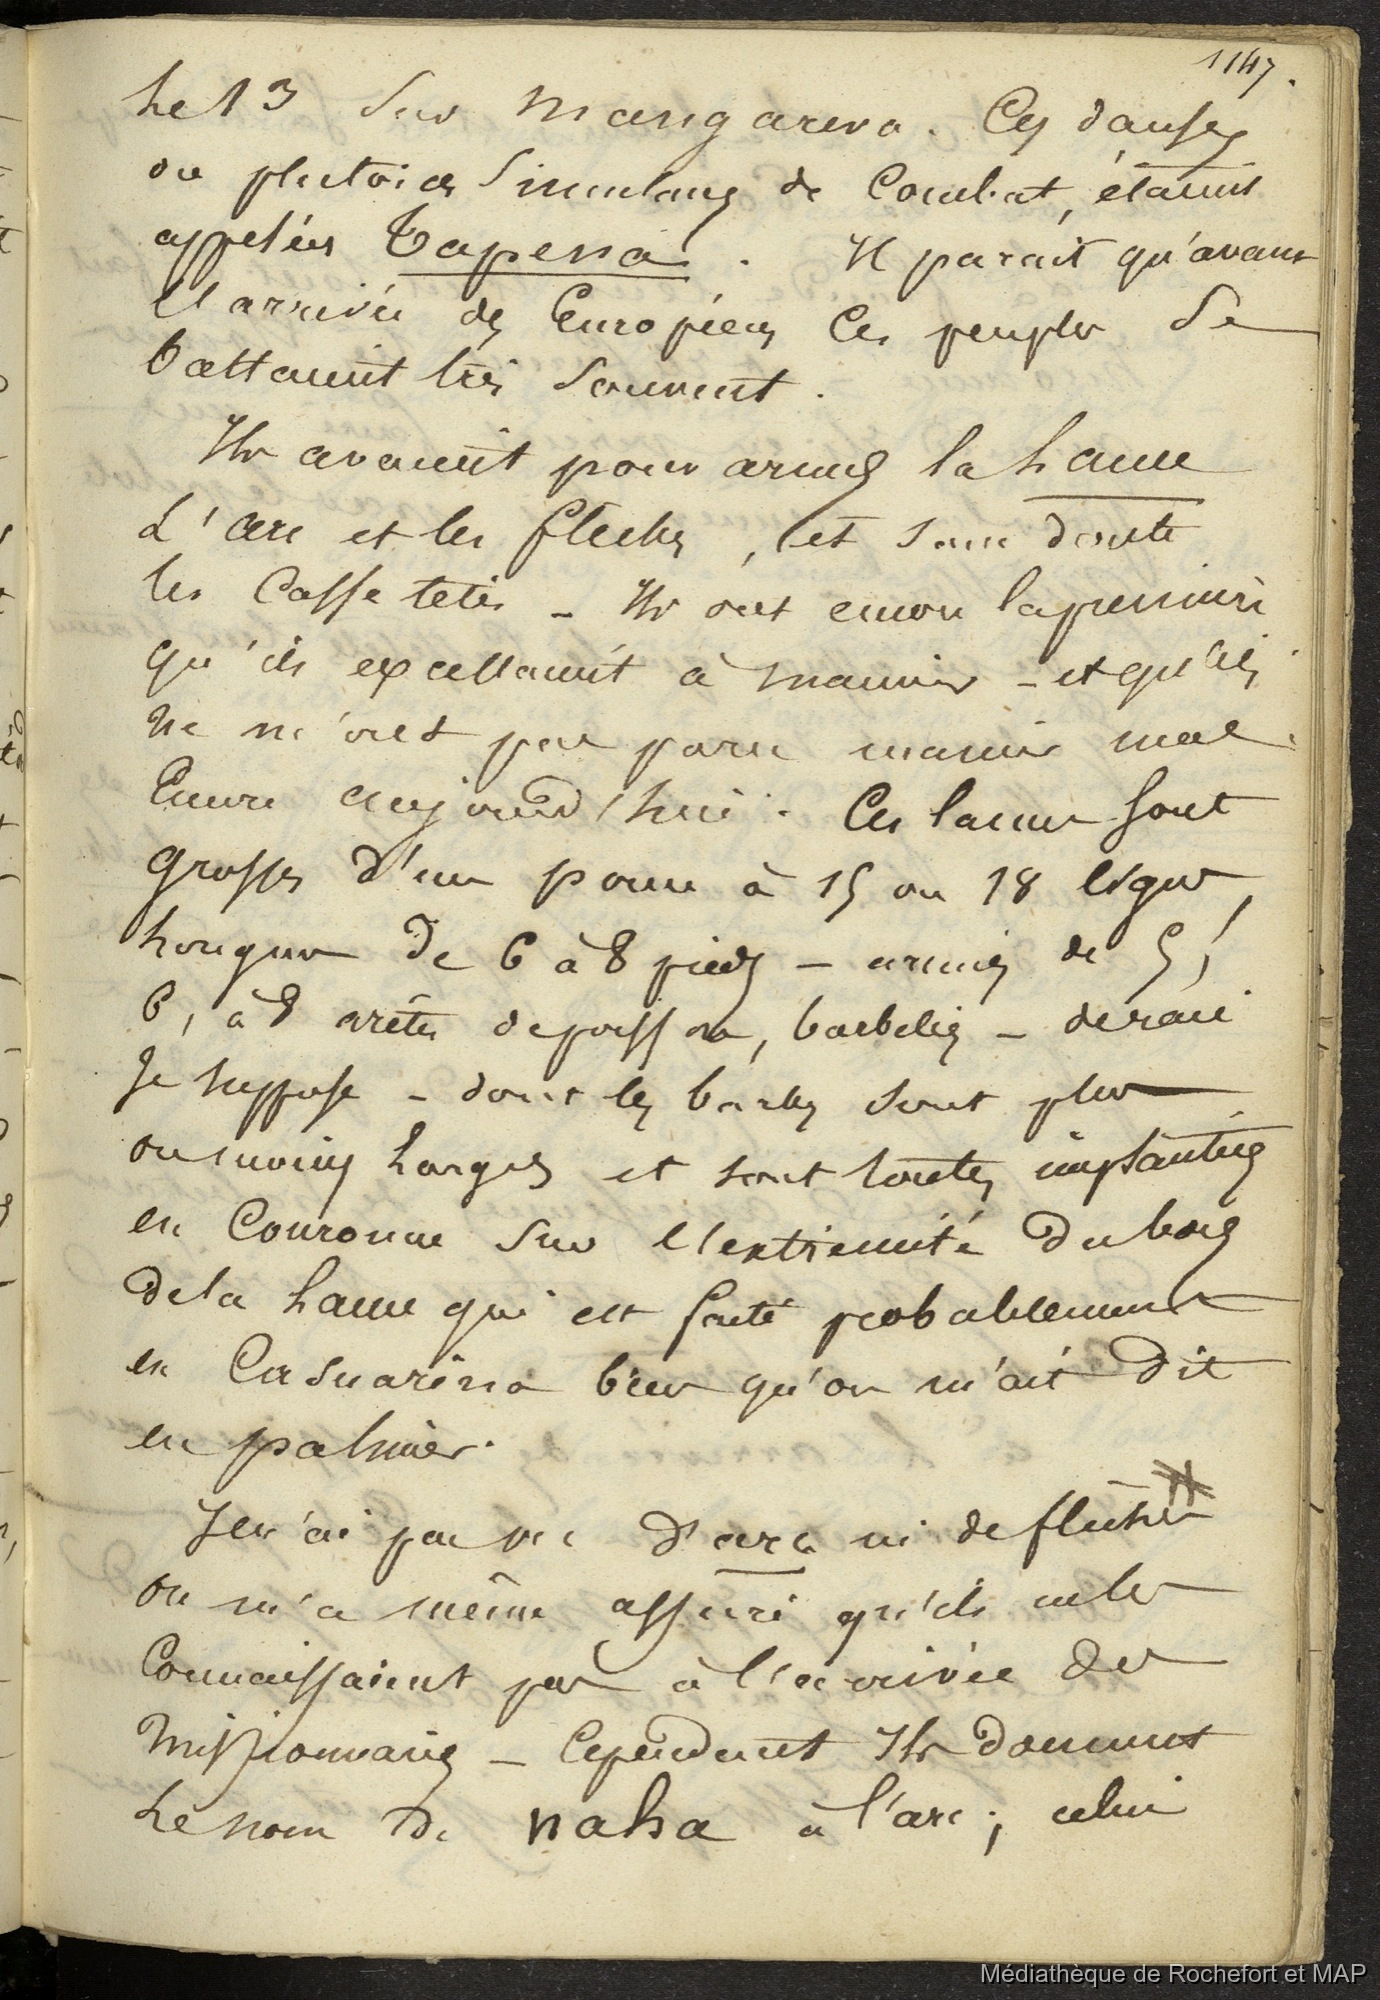 1147.
le 13 sur Mangareva. Ces danses
ou plutôt ces simulans de Combat, étaient
appelées Tapena. Il parait qu'avant
l'arrivée des Européens Ces peuples se
battaient très souvent.
Ils avaient pour armes la lance
L'arc et les flèches, et sans doute
les Casse têtes _ Ils ont encore la première
qu'ils excellaient à manier _ et qu'ils
ne m'ont pas paru manier mal
Encore aujourd'hui. Ces lances sont
grosses d'un pouce à 15 ou 18 lignes,
longues de 6 à 8 pieds _ armées de 5,
6, à 8 arêtes de poisson, barbelées _ de raie
Je suppose _ dont les barbes sont plus
ou moins longues et sont toutes implantées
en Couronne sur l'extremité du bois
de la lance qui est faite probablement
en Casuarina bien qu'on m'ait dit
en palmier.
Je n'ai pas vu d'arc ni de flèches
on m'a même assuré qu'ils ne les
Connaissaient pas à l'arrivée des
Missionnaires _ Cependant Ils donnent
Le nom de naha à l'arc ; celui
Médiathèque de Rochefort et MAP